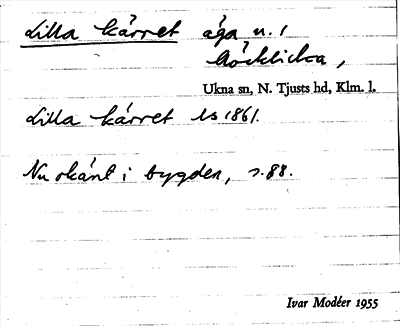 Lilla kärret äga u. /
Göcklicka,
Ukna sn, N. Tjusts hd, Klm. l.
Lilla kärret Ls 1861.
Nu okänt i bygden, s. 88.
Ivar Modéer 1955